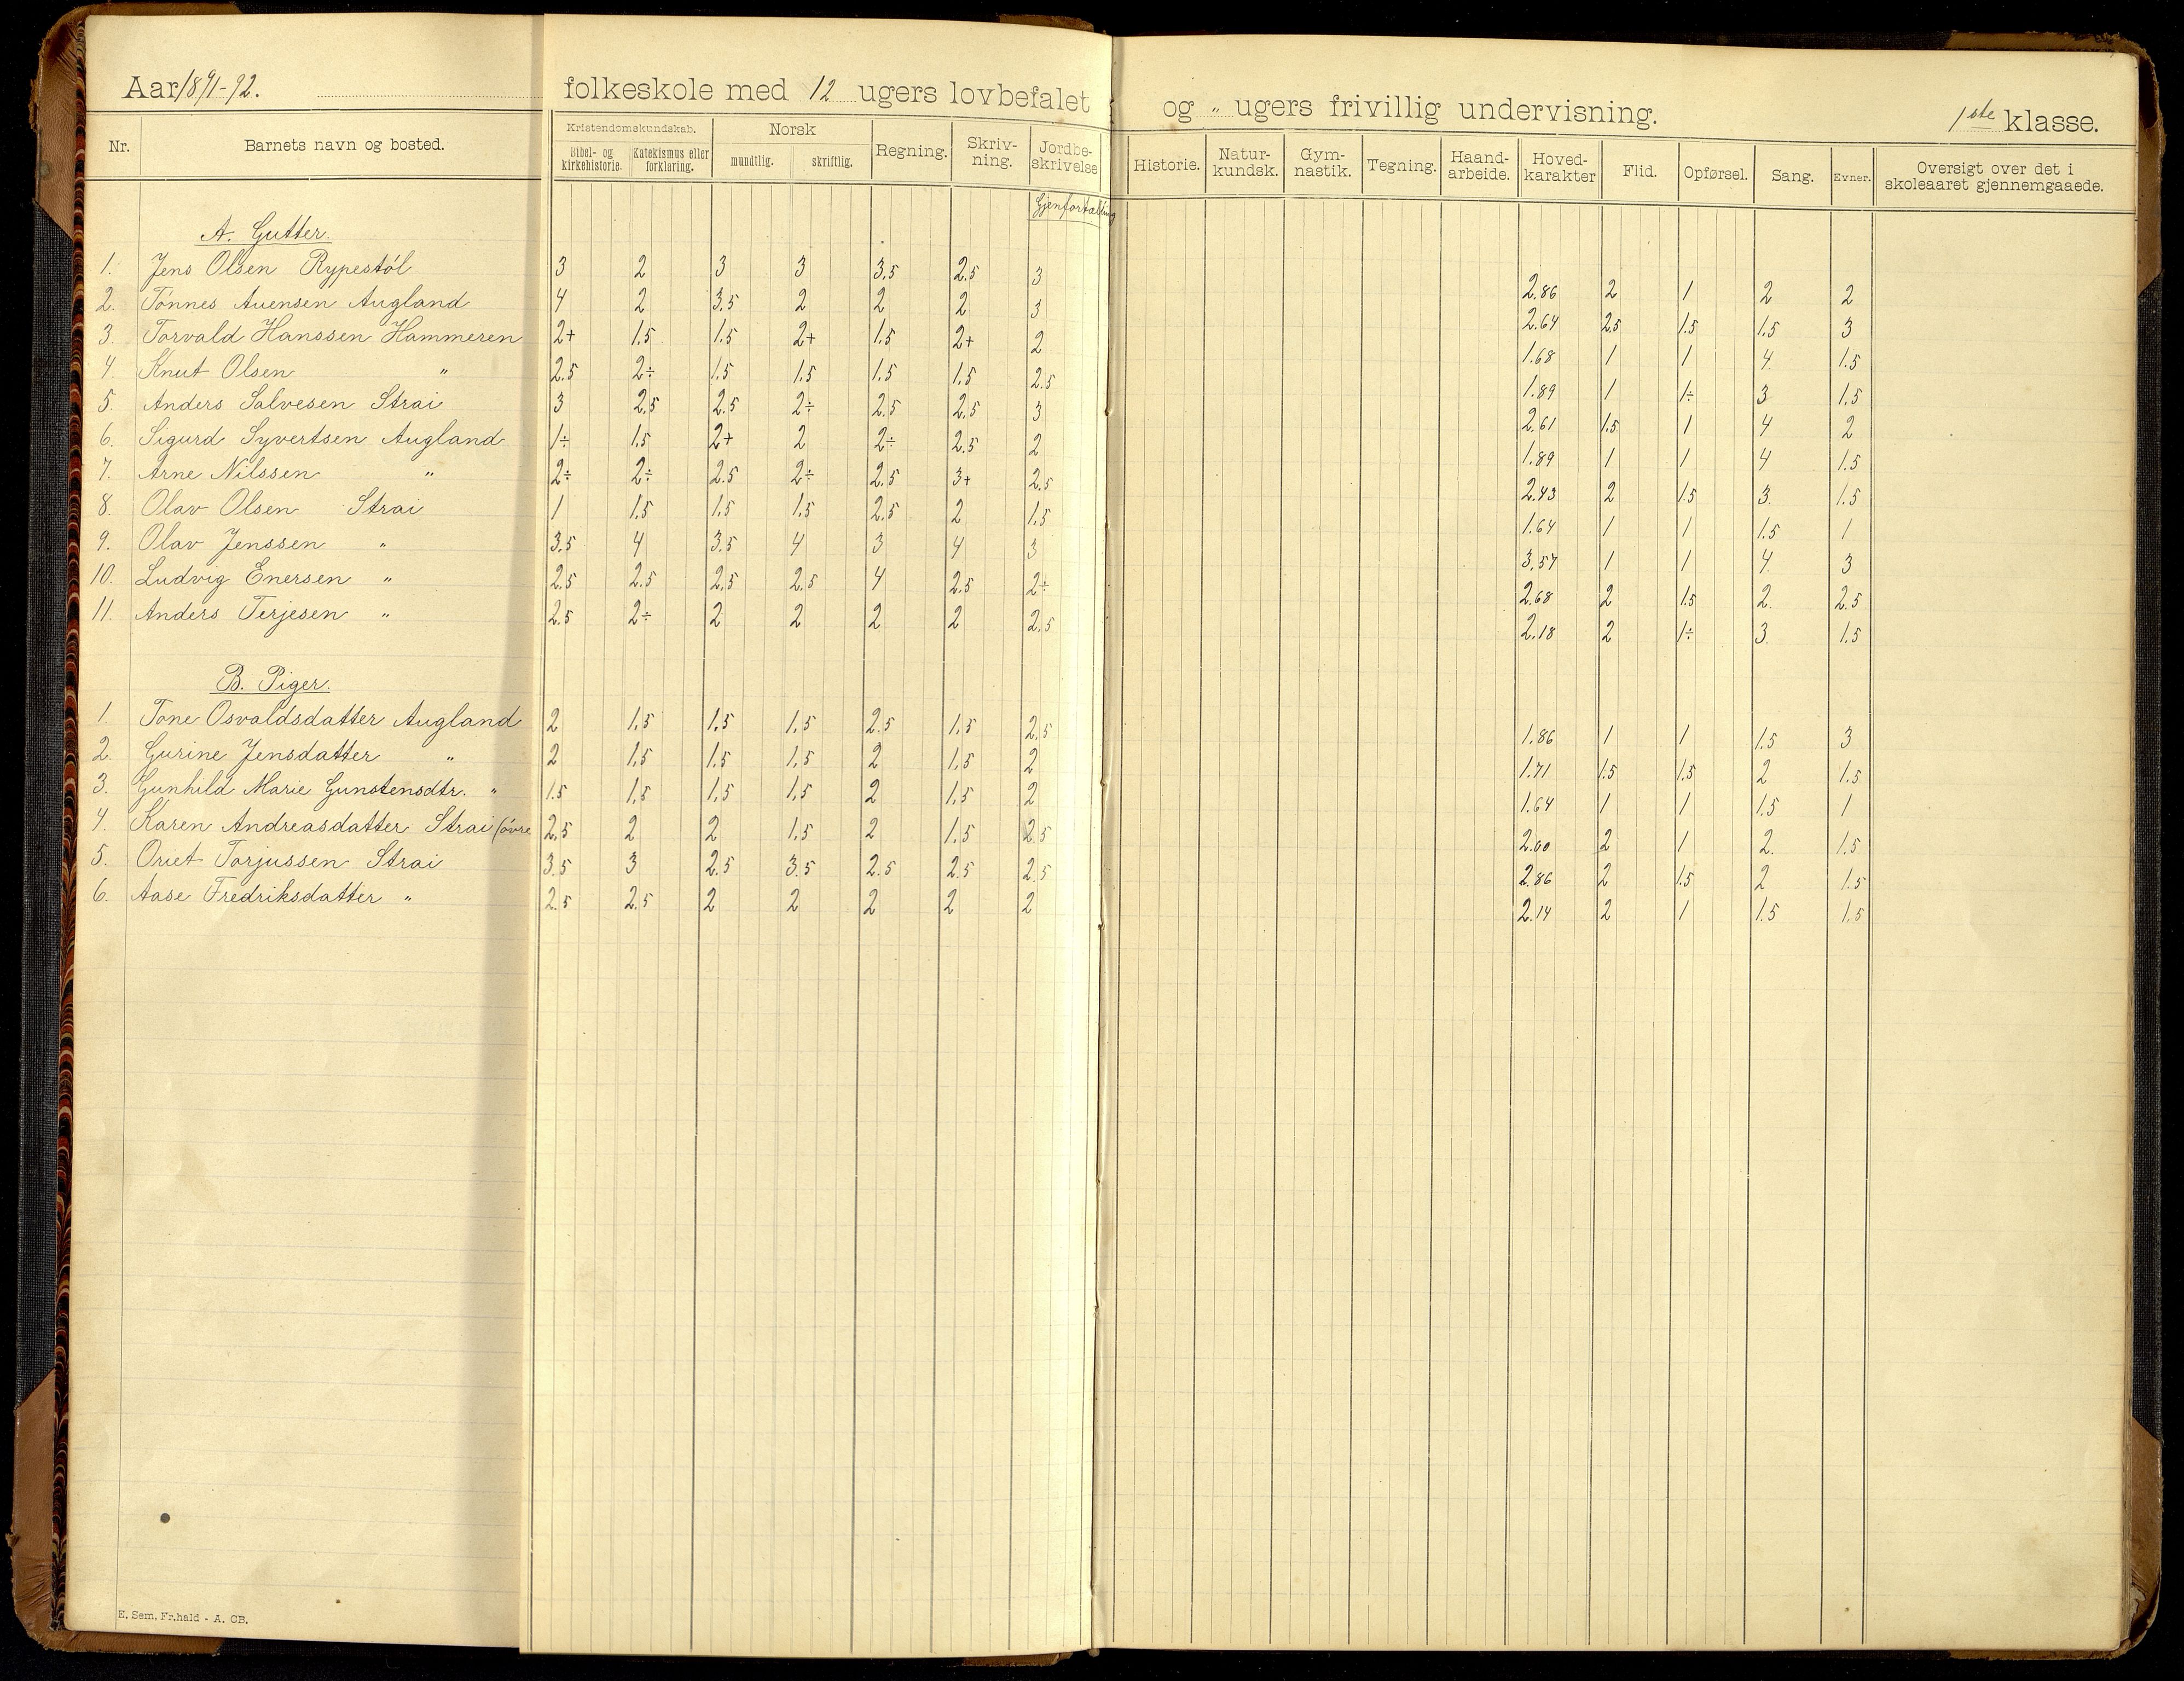 Aar 1891-92. folkeskole med 12 ugers lovbefalet og " ugers frivillig undervisning. 1ste klasse.
Nr. Barnets navn og bosted. Kristendomskundskab. Bibel- og kirkehistorie. Katekismus eller forklaring. Norsk mundtlig. skriftlig. Regning. Skriv-ning. Jordbe-skrivelse Historie. Natur-kundsk. Gym-nastik. Tegning. Haand-arbeide. Hoved-karakter Flid. Opførsel. Sang. Evner. Oversigt over det i skoleaaret gjennemgaaede.
Gjenfortælling
A. Gutter.
1. Jens Olsen Rypestöl 3 2 3 3 3,5 2.5 3 2.86 2 1 2 2
2. Tönnes Auensen Augland 4 2 3.5 2 2 2 3 2.64 2.5 1.5 1.5 3
3. Torvald Hanssen Hammeren 2+ 1.5 1.5 2+ 1.5 2+ 2 1.68 1 1 4. 1.5
4. Knut Olsen " 2.5 2÷ 1.5 1.5 1.5 1.5 2.5 1.89 1 1÷ 3 1.5
5. Anders Salvesen Strai 3 2.5 2.5 2÷ 2.5 2.5 3 2.61 1.5 1 4 2
6. Sigurd Syvertsen Augland 1÷ 1.5 2+ 2 2÷ 2.5 2 1.89 1 1 4 1.5
7. Arne Nilssen " 2÷ 2÷ 2.5 2÷ 2.5 3+ 2.5 2.43 2 1.5 3. 1.5
8. Olav Olsen Strai 1 1.5 1.5 1.5 2.5 2 1.5 1.64 1 1 1.5 1
9. Olav Jenssen " 3.5 4 3.5 4 3 4 3 3.57 1 1 4. 3
10. Ludvig Enersen " 2.5 2.5 2.5 2.5 4 2.5 2÷ 2.68 2 1.5 2. 2.5
11. Anders Terjesen " 2.5 2÷ 2 2 2 2 2.5 2.18 2 1÷ 3. 1.5
B. Piger.
1. Tone Osvaldsdatter Augland 2 1.5 1.5 1.5 2.5 1.5 2.5 1.86 1 1 1.5 3
2. Gurine Jensdatter " 2 1.5 1.5 1.5 2 1.5 2 1.71 1.5 1.5 2 1.5
3. Gunhild Marie Gunstensdtr. " 1.5 1.5 1.5 1.5 2 1.5 2 1.64 1 1 1.5 1
4. Karen Andreasdatter Strai (övre 2.5 2 2 1.5 2 1.5 2.5 2.00 2 1 2. 1.5
5. Oriet Torjussen Strai 3.5 3 2.5 3.5 2.5 2.5 2.5 2.86 2 1.5 2 1.5
6. Aase Fredriksdatter " 2.5 2.5 2 2 2 2 2 2.14 2 1 1.5 1.5
E. Sem, Fr.hald - A. CB.